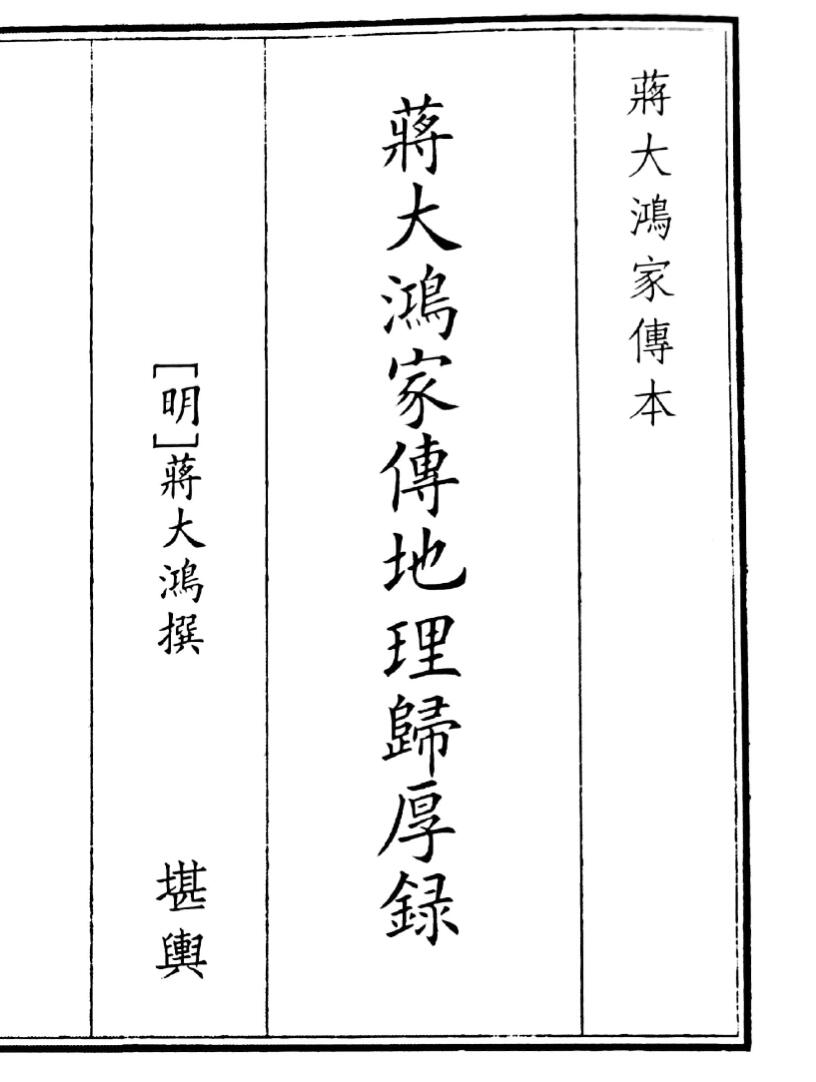 蔣大鴻家傳本
蔣大鴻家傳地理歸厚録
[明]蔣大鴻撰
堪輿